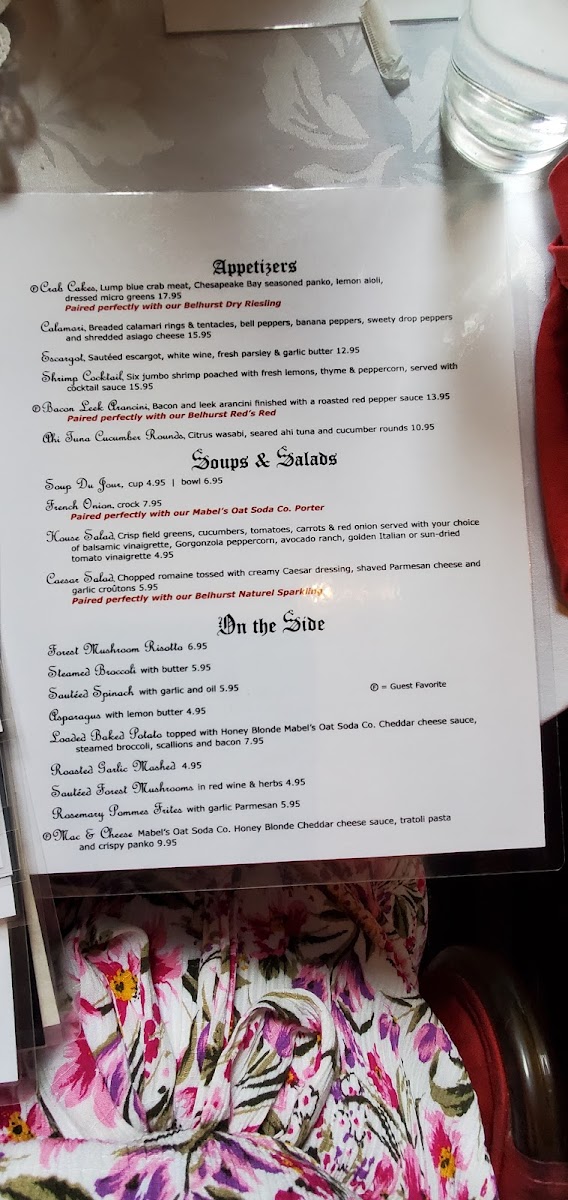 Appetizers
Ⓕ Crab Cakes, Lump blue crab meat, Chesapeake Bay seasoned panko, lemon aioli,
dressed micro greens 17.95
Paired perfectly with our Belhurst Dry Riesling
Calamari, Breaded calamari rings & tentacles, bell peppers, banana peppers, sweety drop peppers
and shredded asiago cheese 15.95
Escargot, Sautéed escargot, white wine, fresh parsley & garlic butter 12.95
Shrimp Cocktail, Six jumbo shrimp poached with fresh lemons, thyme & peppercorn, served with
cocktail sauce 15.95
Ⓕ Bacon Leek Arancini, Bacon and leek arancini finished with a roasted red pepper sauce 13.95
Paired perfectly with our Belhurst Red's Red
Ahi Tuna Cucumber Rounds, Citrus wasabi, seared ahi tuna and cucumber rounds 10.95
Soups & Salads
Soup Du Jour, cup 4.95 | bowl 6.95
French Onion, crock 7.95
Paired perfectly with our Mabel's Oat Soda Co. Porter
House Salad, Crisp field greens, cucumbers, tomatoes, carrots & red onion served with your choice
of balsamic vinaigrette, Gorgonzola peppercorn, avocado ranch, golden Italian or sun-dried
tomato vinaigrette 4.95
Caesar Salad, Chopped romaine tossed with creamy Caesar dressing, shaved Parmesan cheese and
garlic croûtons 5.95
Paired perfectly with our Belhurst Naturel Sparkling
On the Side
Forest Mushroom Risotto 6.95
Steamed Broccoli with butter 5.95
Sautéed Spinach with garlic and oil 5.95
Ⓕ = Guest Favorite
Asparagus with lemon butter 4.95
Loaded Baked Potato topped with Honey Blonde Mabel's Oat Soda Co. Cheddar cheese sauce,
steamed broccoli, scallions and bacon 7.95
Roasted Garlic Mashed 4.95
Sautéed Forest Mushrooms in red wine & herbs 4.95
Rosemary Pommes Frites with garlic Parmesan 5.95
Ⓕ Mac & Cheese Mabel's Oat Soda Co. Honey Blonde Cheddar cheese sauce, tratoli pasta
and crispy panko 9.95